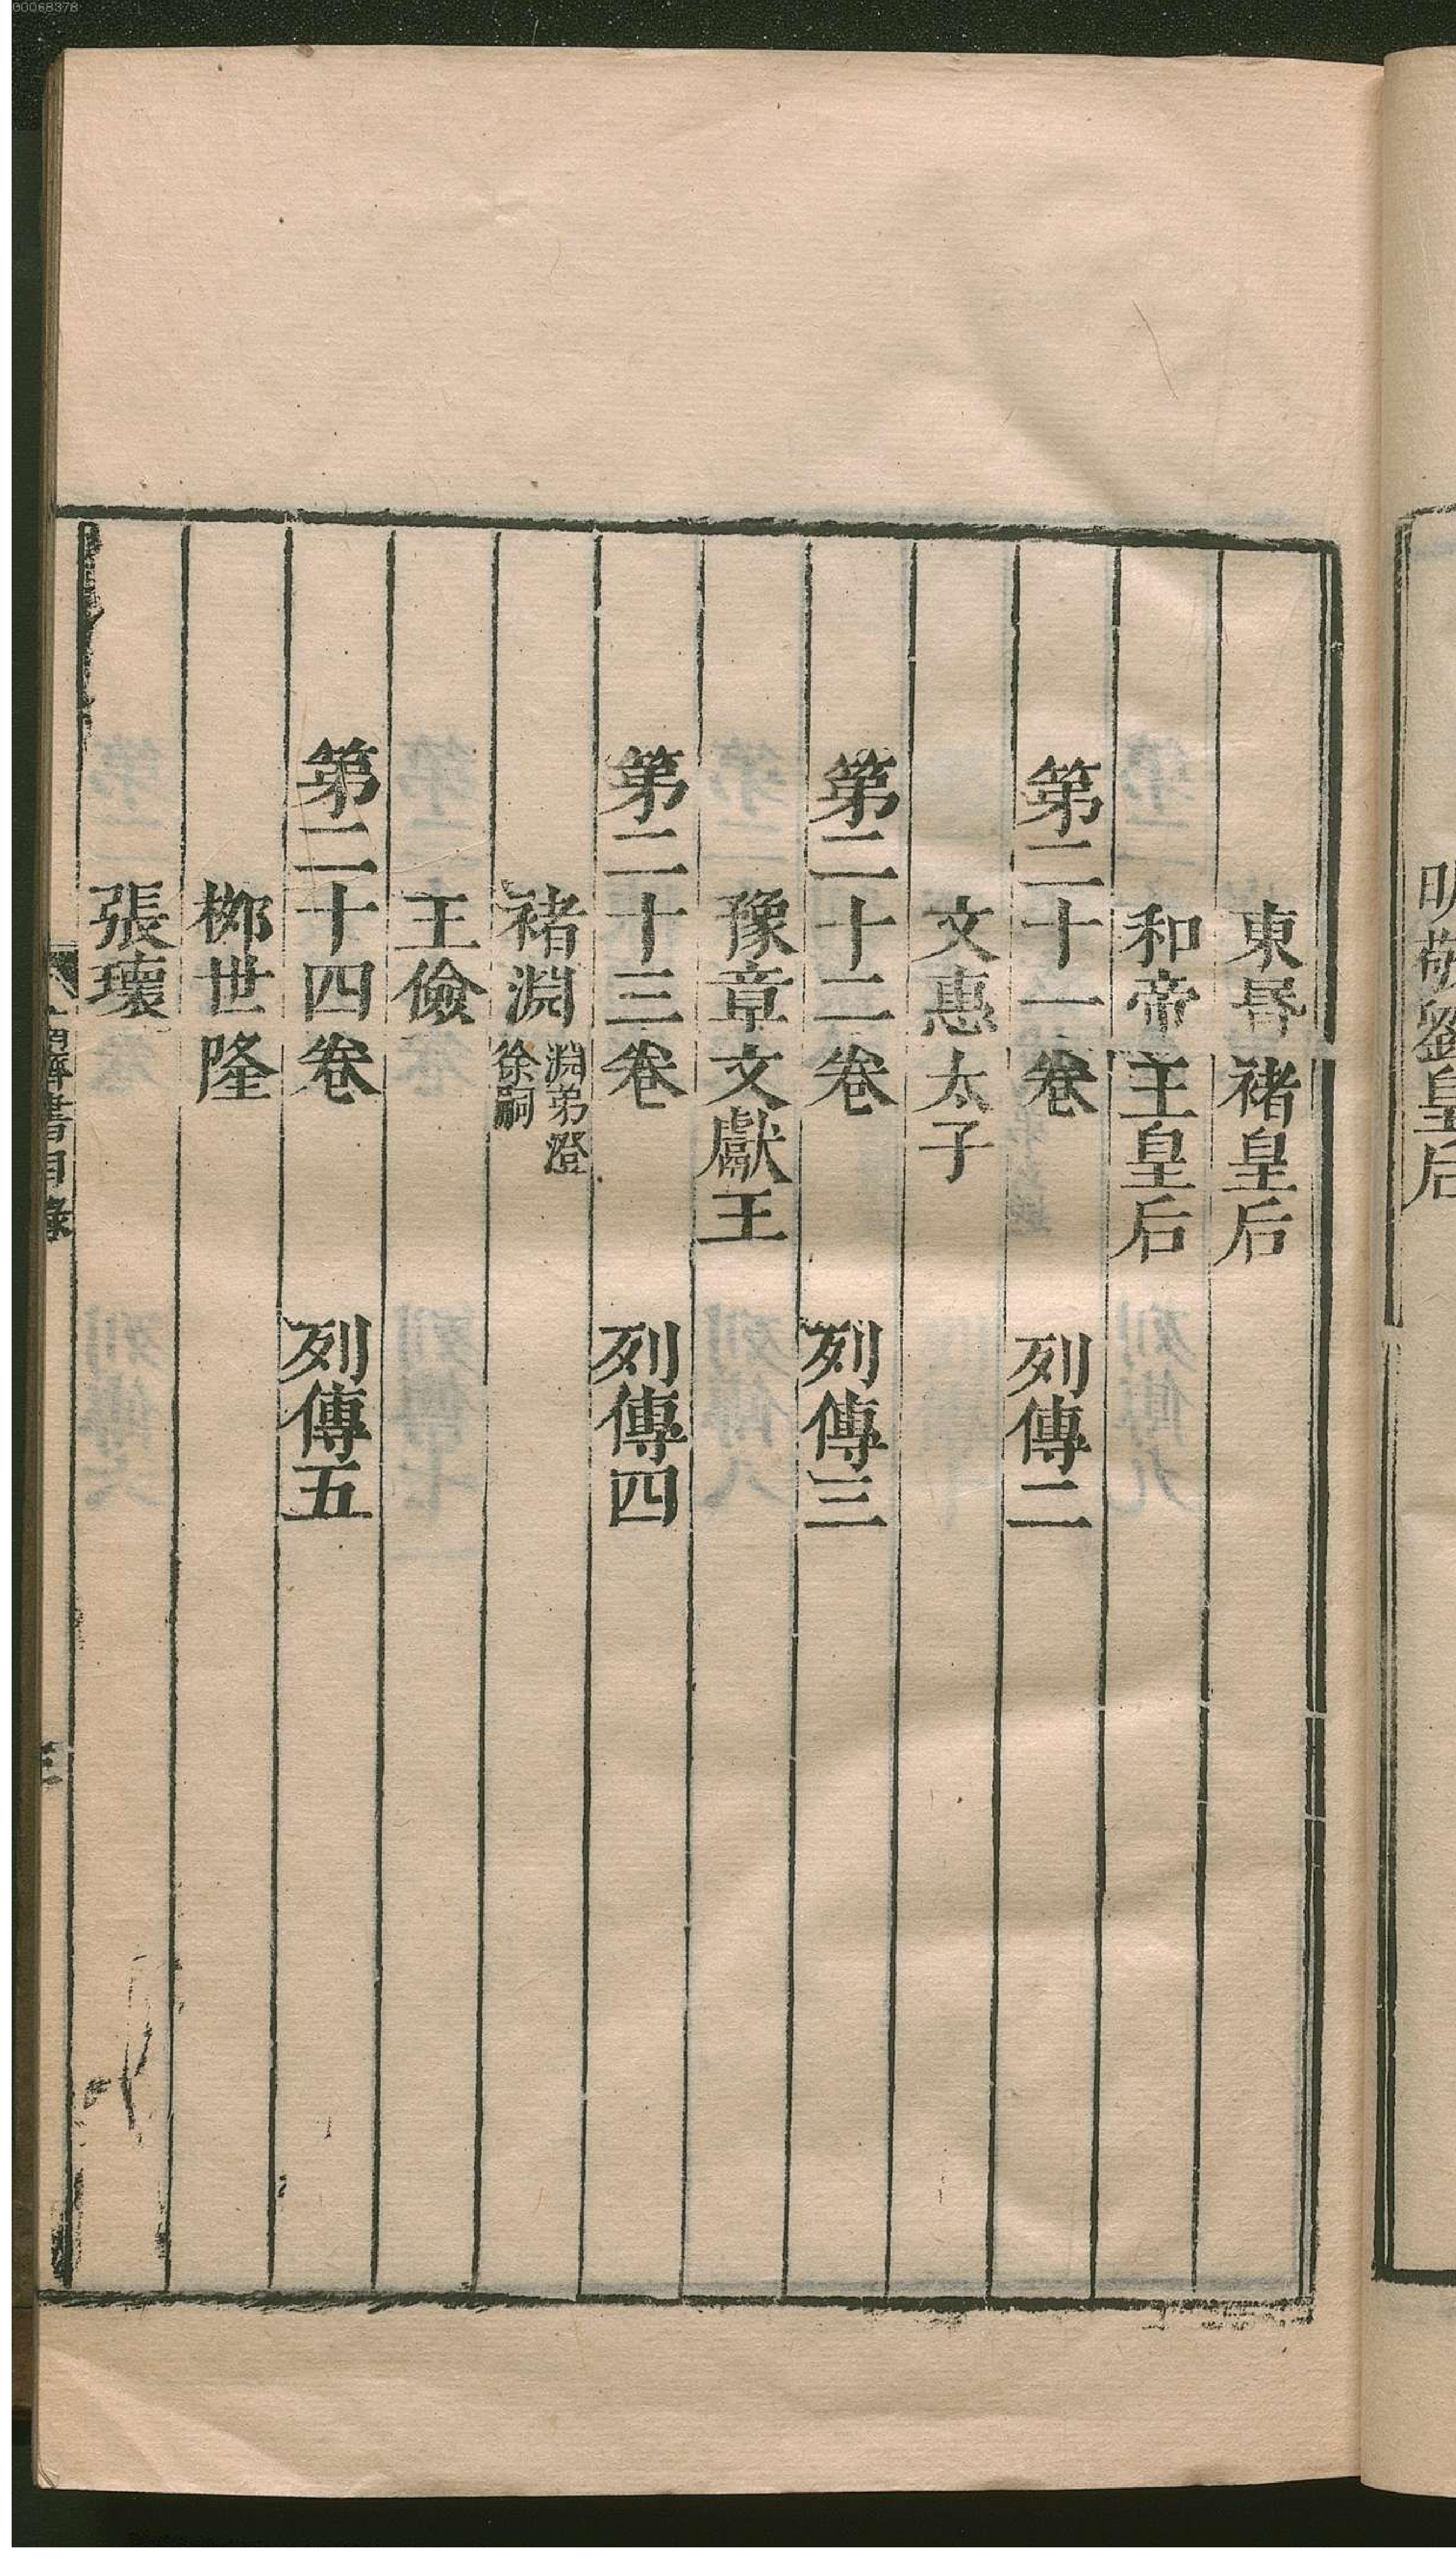 00068378
明敬劉皇后
東昬褚皇后
和帝王皇后
第二十一卷 列傳二
文惠太子
第二十二卷 列傳三
豫章文獻王
第二十三卷 列傳四
褚淵 淵弟澄 徐嗣
王儉
第二十四卷 列傳五
桺世隆
張瓌
南齊書目錄 三